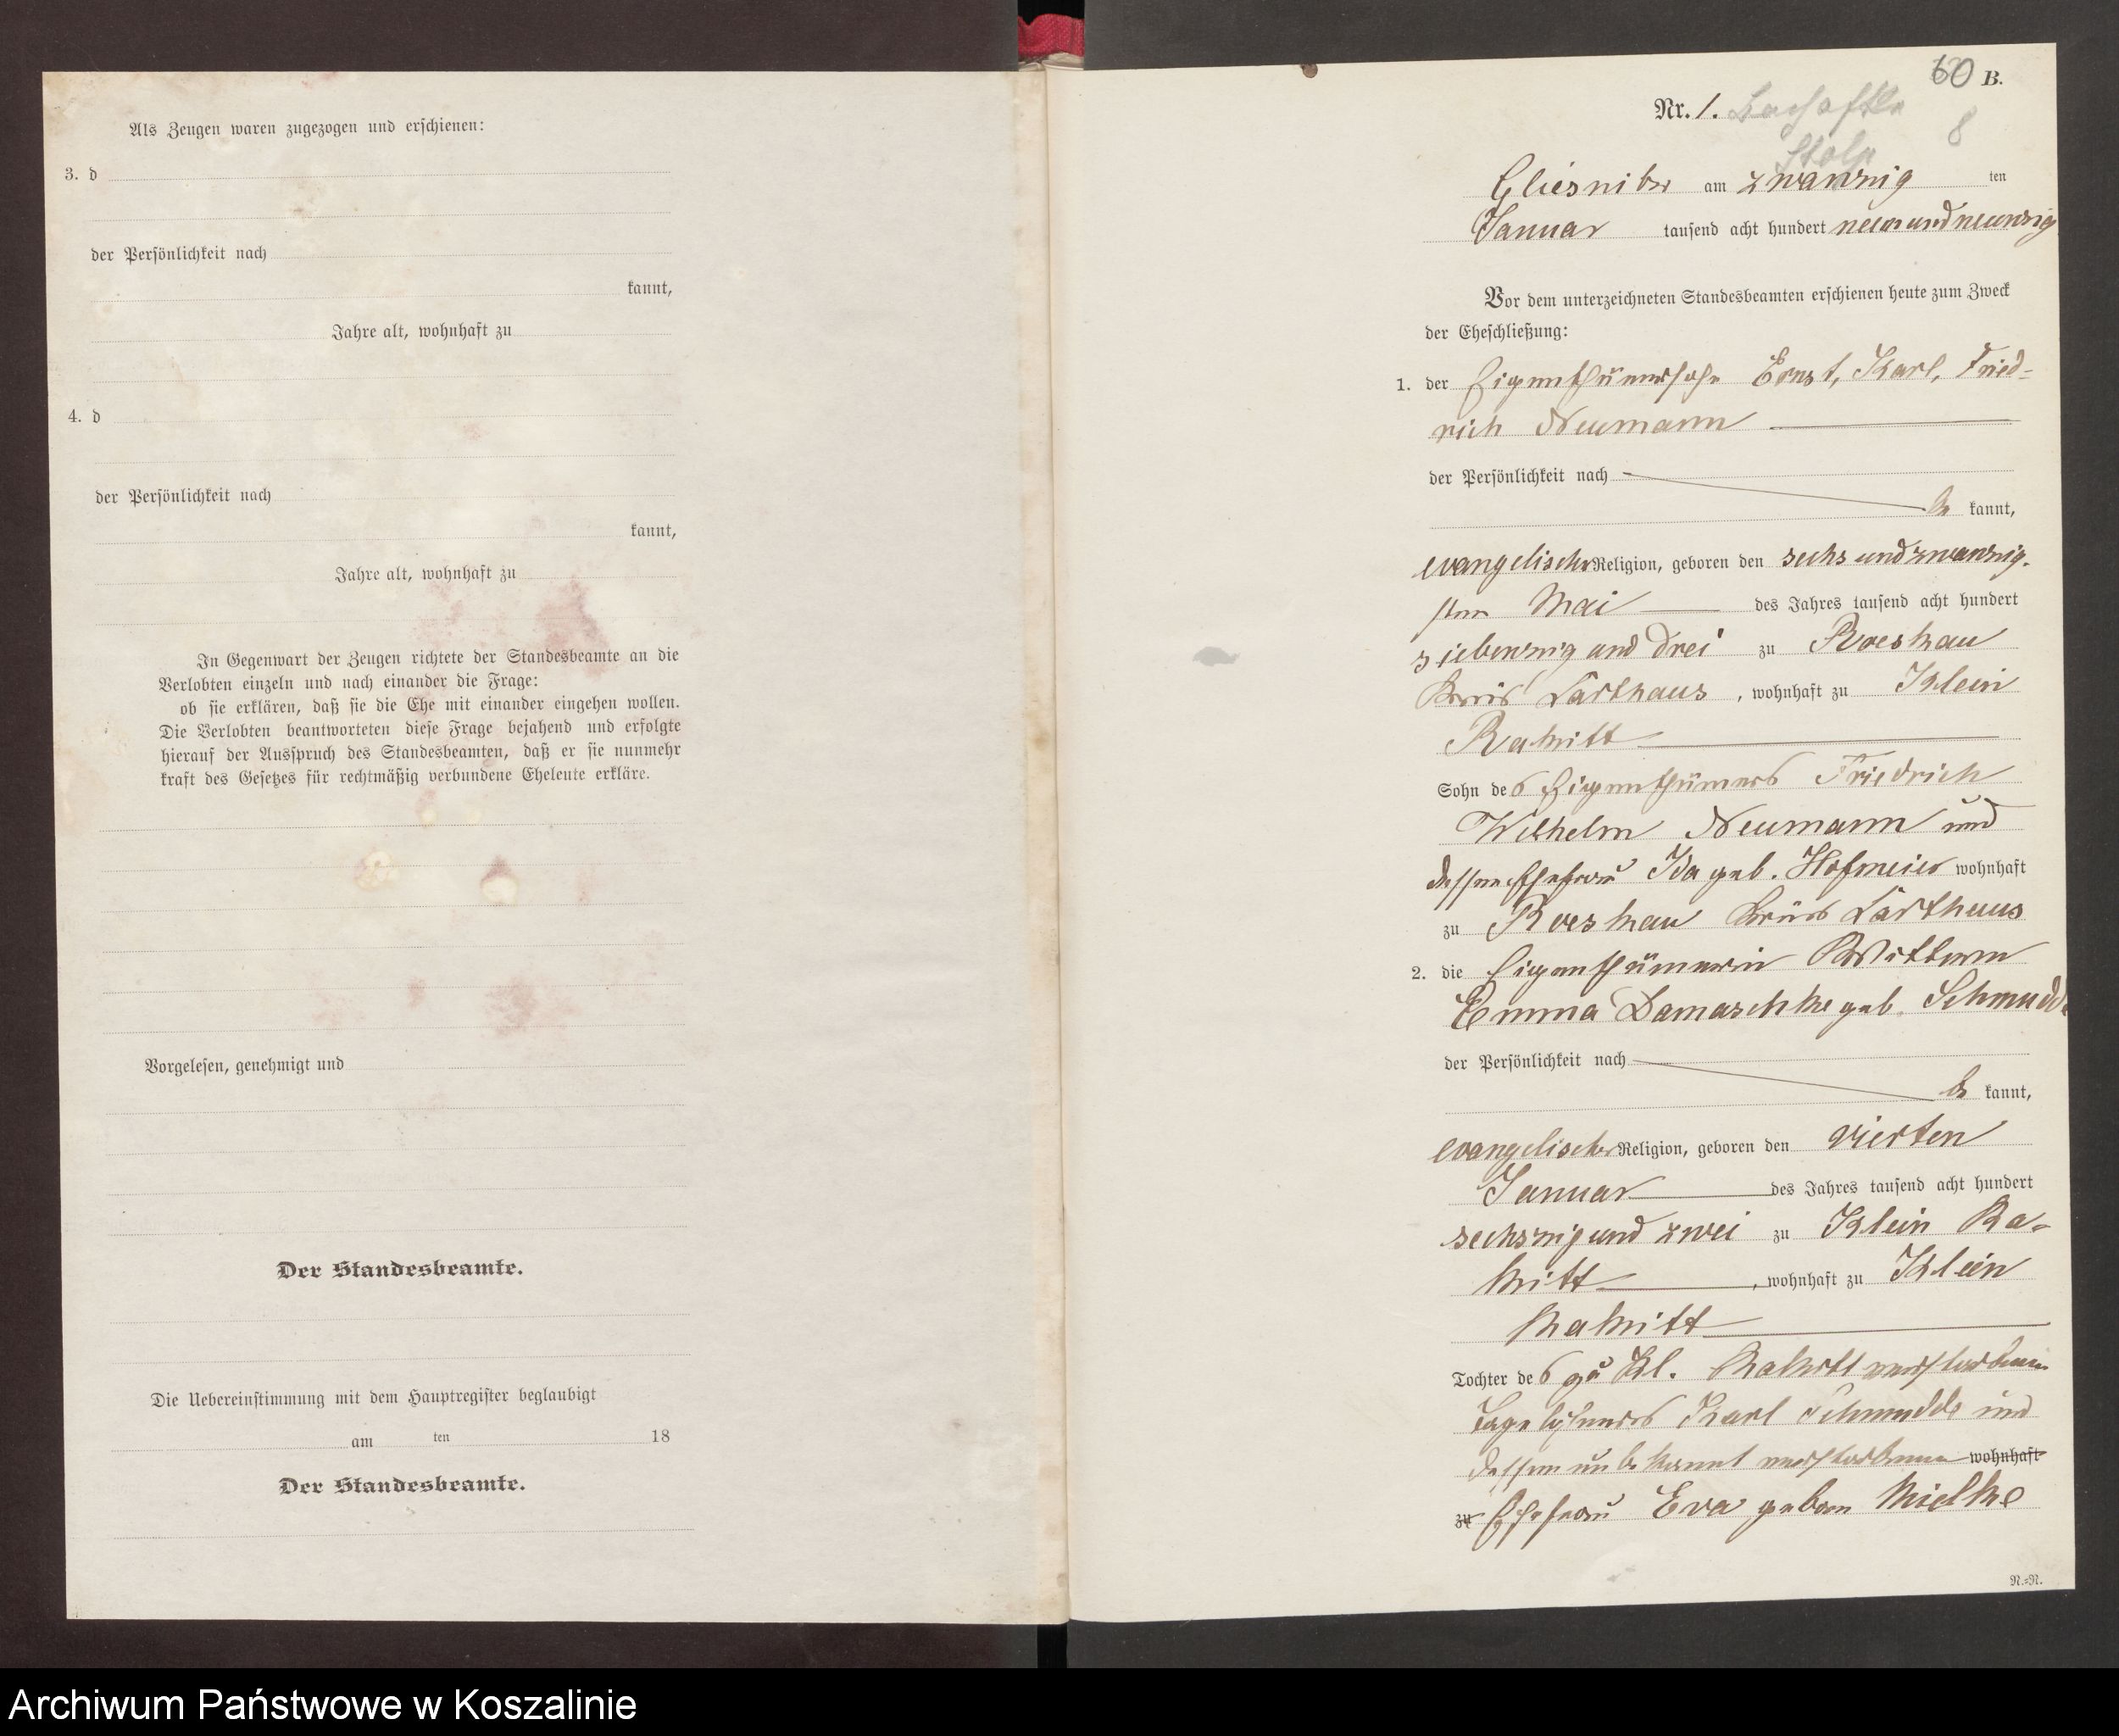 Als Zeugen waren zugezogen und erschienen:
3. d
der Persönlichkeit nach
kannt,
Jahre alt, wohnhaft zu
4. d
der Persönlichkeit nach
kannt,
Jahre alt, wohnhaft zu
In Gegenwart der Zeugen richtete der Standesbeamte an die
Verlobten einzeln und nach einander die Frage:
ob sie erklären, daß sie die Ehe mit einander eingehen wollen.
Die Verlobten beantworteten diese Frage bejahend und erfolgte
hierauf der Ausspruch des Standesbeamten, daß er sie nunmehr
kraft des Gesetzes für rechtmäßig verbundene Eheleute erkläre.
Vorgelesen, genehmigt und
Der Standesbeamte.
Die Uebereinstimmung mit dem Hauptregister beglaubigt
am ten 18
Der Standesbeamte.
60 B.
Nr. 1.
8
Stolp
Gliesnitz am zwanzig ten
Januar tausend acht hundert neunundneunzig
Vor dem unterzeichneten Standesbeamten erschienen heute zum Zweck
der Eheschließung:
1. der Eigenthümersohn Ernst, Karl, Fried-
rich Neumann
der Persönlichkeit nach
be kannt,
evangelischer Religion, geboren den sechs und zwanzig-
sten Mai des Jahres tausend acht hundert
siebenzig und drei zu Roeskau
Kreis Carthaus, wohnhaft zu Klein
Rakitt
Sohn des Eigenthümers Friedrich
Wilhelm Neumann und
dessen Ehefrau Ida geb. Hofmeier wohnhaft
zu Roeskau Kreis Carthaus
2. die Eigenthümerin Wittwe
Emma Damaschke geb. Schmudde
der Persönlichkeit nach
be kannt,
evangelischer Religion, geboren den vierten
Januar des Jahres tausend acht hundert
sechszig und zwei zu Klein Ra-
kitt, wohnhaft zu Klein
Rakitt
Tochter des zu Kl. Rakitt verstorbenen
Tagelöhners Karl Schmudde und
dessen unbekannt verstorbenen wohnhaft
zu Ehefrau Eva geboren Mielke
N.=N.
Archiwum Państwowe w Koszalinie